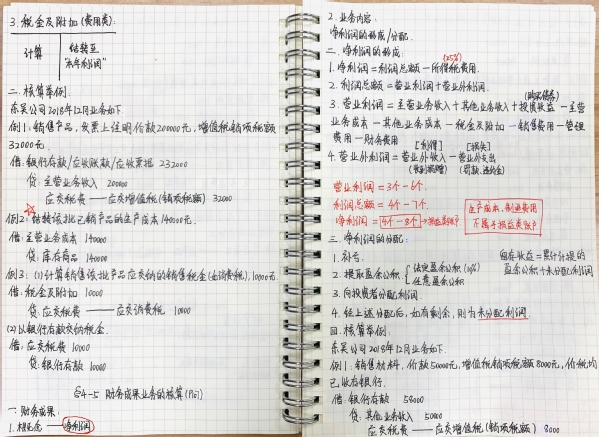 3. 税金及附加(费用类):
计算 结转至
"本年利润"
二. 核算举例.
东吴公司2018年12月业务如下.
例1: 销售产品, 发票上注明价款200000元, 增值税销项税额
32000元.
借: 银行存款/应收账款/应收票据 232000
贷: 主营业务收入 200000
应交税费——应交增值税(销项税额) 32000
例2: 结转该批已销产品的生产成本140000元.
借: 主营业务成本 140000
贷: 库存商品 140000
例3: (1)计算销售该批产品应交纳的销售税金(如消费税), 10000元.
借: 税金及附加 10000
贷: 应交税费——应交消费税 10000
(2)以银行存款交纳税金.
借: 应交税费 10000
贷: 银行存款 10000
§4-5 财务成果业务的核算(P61)
一. 财务成果:
1. 概念——净利润
2. 业务内容:
净利润的形成/分配.
二. 净利润的形成:
(25%)
1. 净利润=利润总额-所得税费用.
2. 利润总额=营业利润+营业外利润.
(购买债券)
3. 营业利润=主营业务收入+其他业务收入+投资收益-主营
业务成本-其他业务成本-税金及附加-销售费用-管理
费用-财务费用
[利得] [损失]
4. 营业外利润=营业外收入-营业外支出
(罚款、违约金)
营业利润=3个-6个.
利润总额=4个-7个.
净利润=4个-8个→损益类账户
生产成本、制造费用
不属于损益类账户
三. 净利润的分配:
1. 补亏.
2. 提取盈余公积 法定盈余公积(10%)
任意盈余公积
留存收益=累计计提的
盈余公积+未分配利润
3. 向投资者分配利润.
4. 经上述分配后, 如有剩余, 则为未分配利润.
四. 核算举例.
东吴公司2018年12月业务如下.
例1: 销售材料, 价款50000元, 增值税销项税额8000元, 价税均
已收存银行.
借: 银行存款 58000
贷: 其他业务收入 50000
应交税费——应交增值税(销项税额) 8000